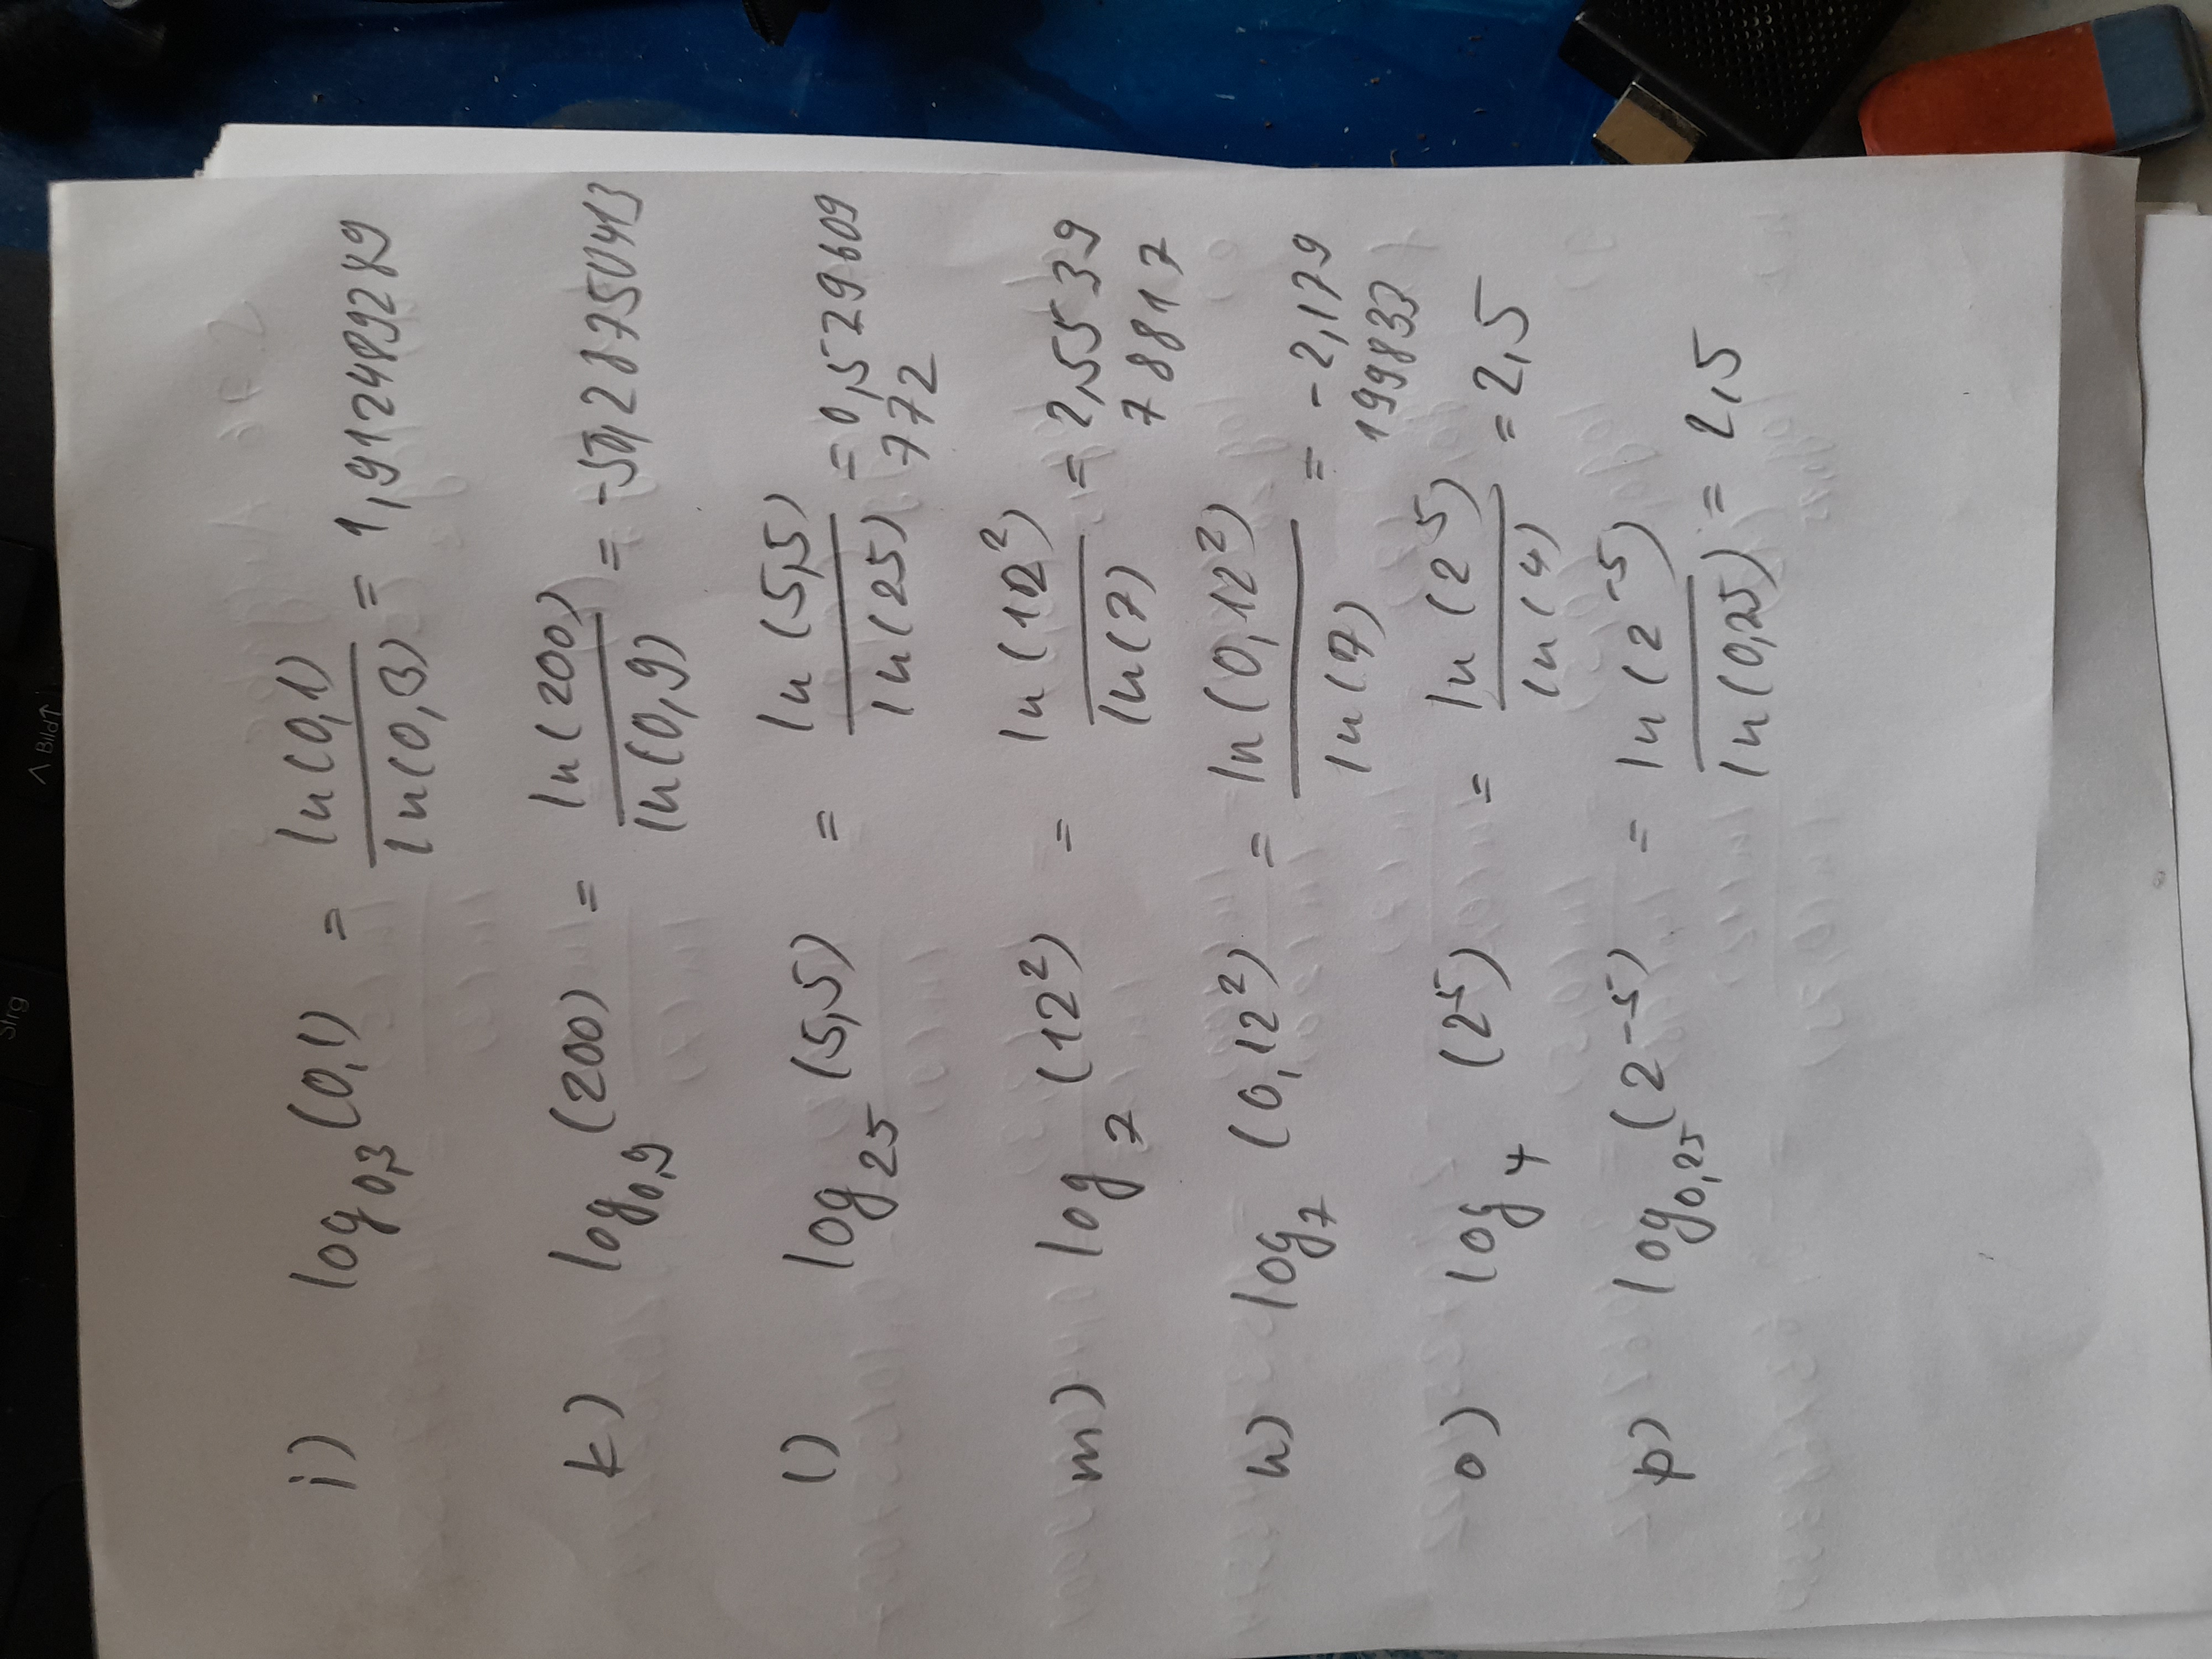 i) log₀,₃(0,1) = ln(0,1) / ln(0,3) = 1,912489289
k) log₀,₉(200) = ln(200) / ln(0,9) = -50,28750413
l) log₂₅(5,5) = ln(5,5) / ln(25) = 0,529609
772
m) log₇(12²) = ln(12²) / ln(7) = 2,5539
78817
n) log₇(0,12²) = ln(0,12²) / ln(7) = -2,179
199833
o) log₄(2⁵) = ln(2⁵) / ln(4) = 2,5
p) log₀,₂₅(2⁻⁵) = ln(2⁻⁵) / ln(0,25) = 2,5
Strg
^ Bild↑